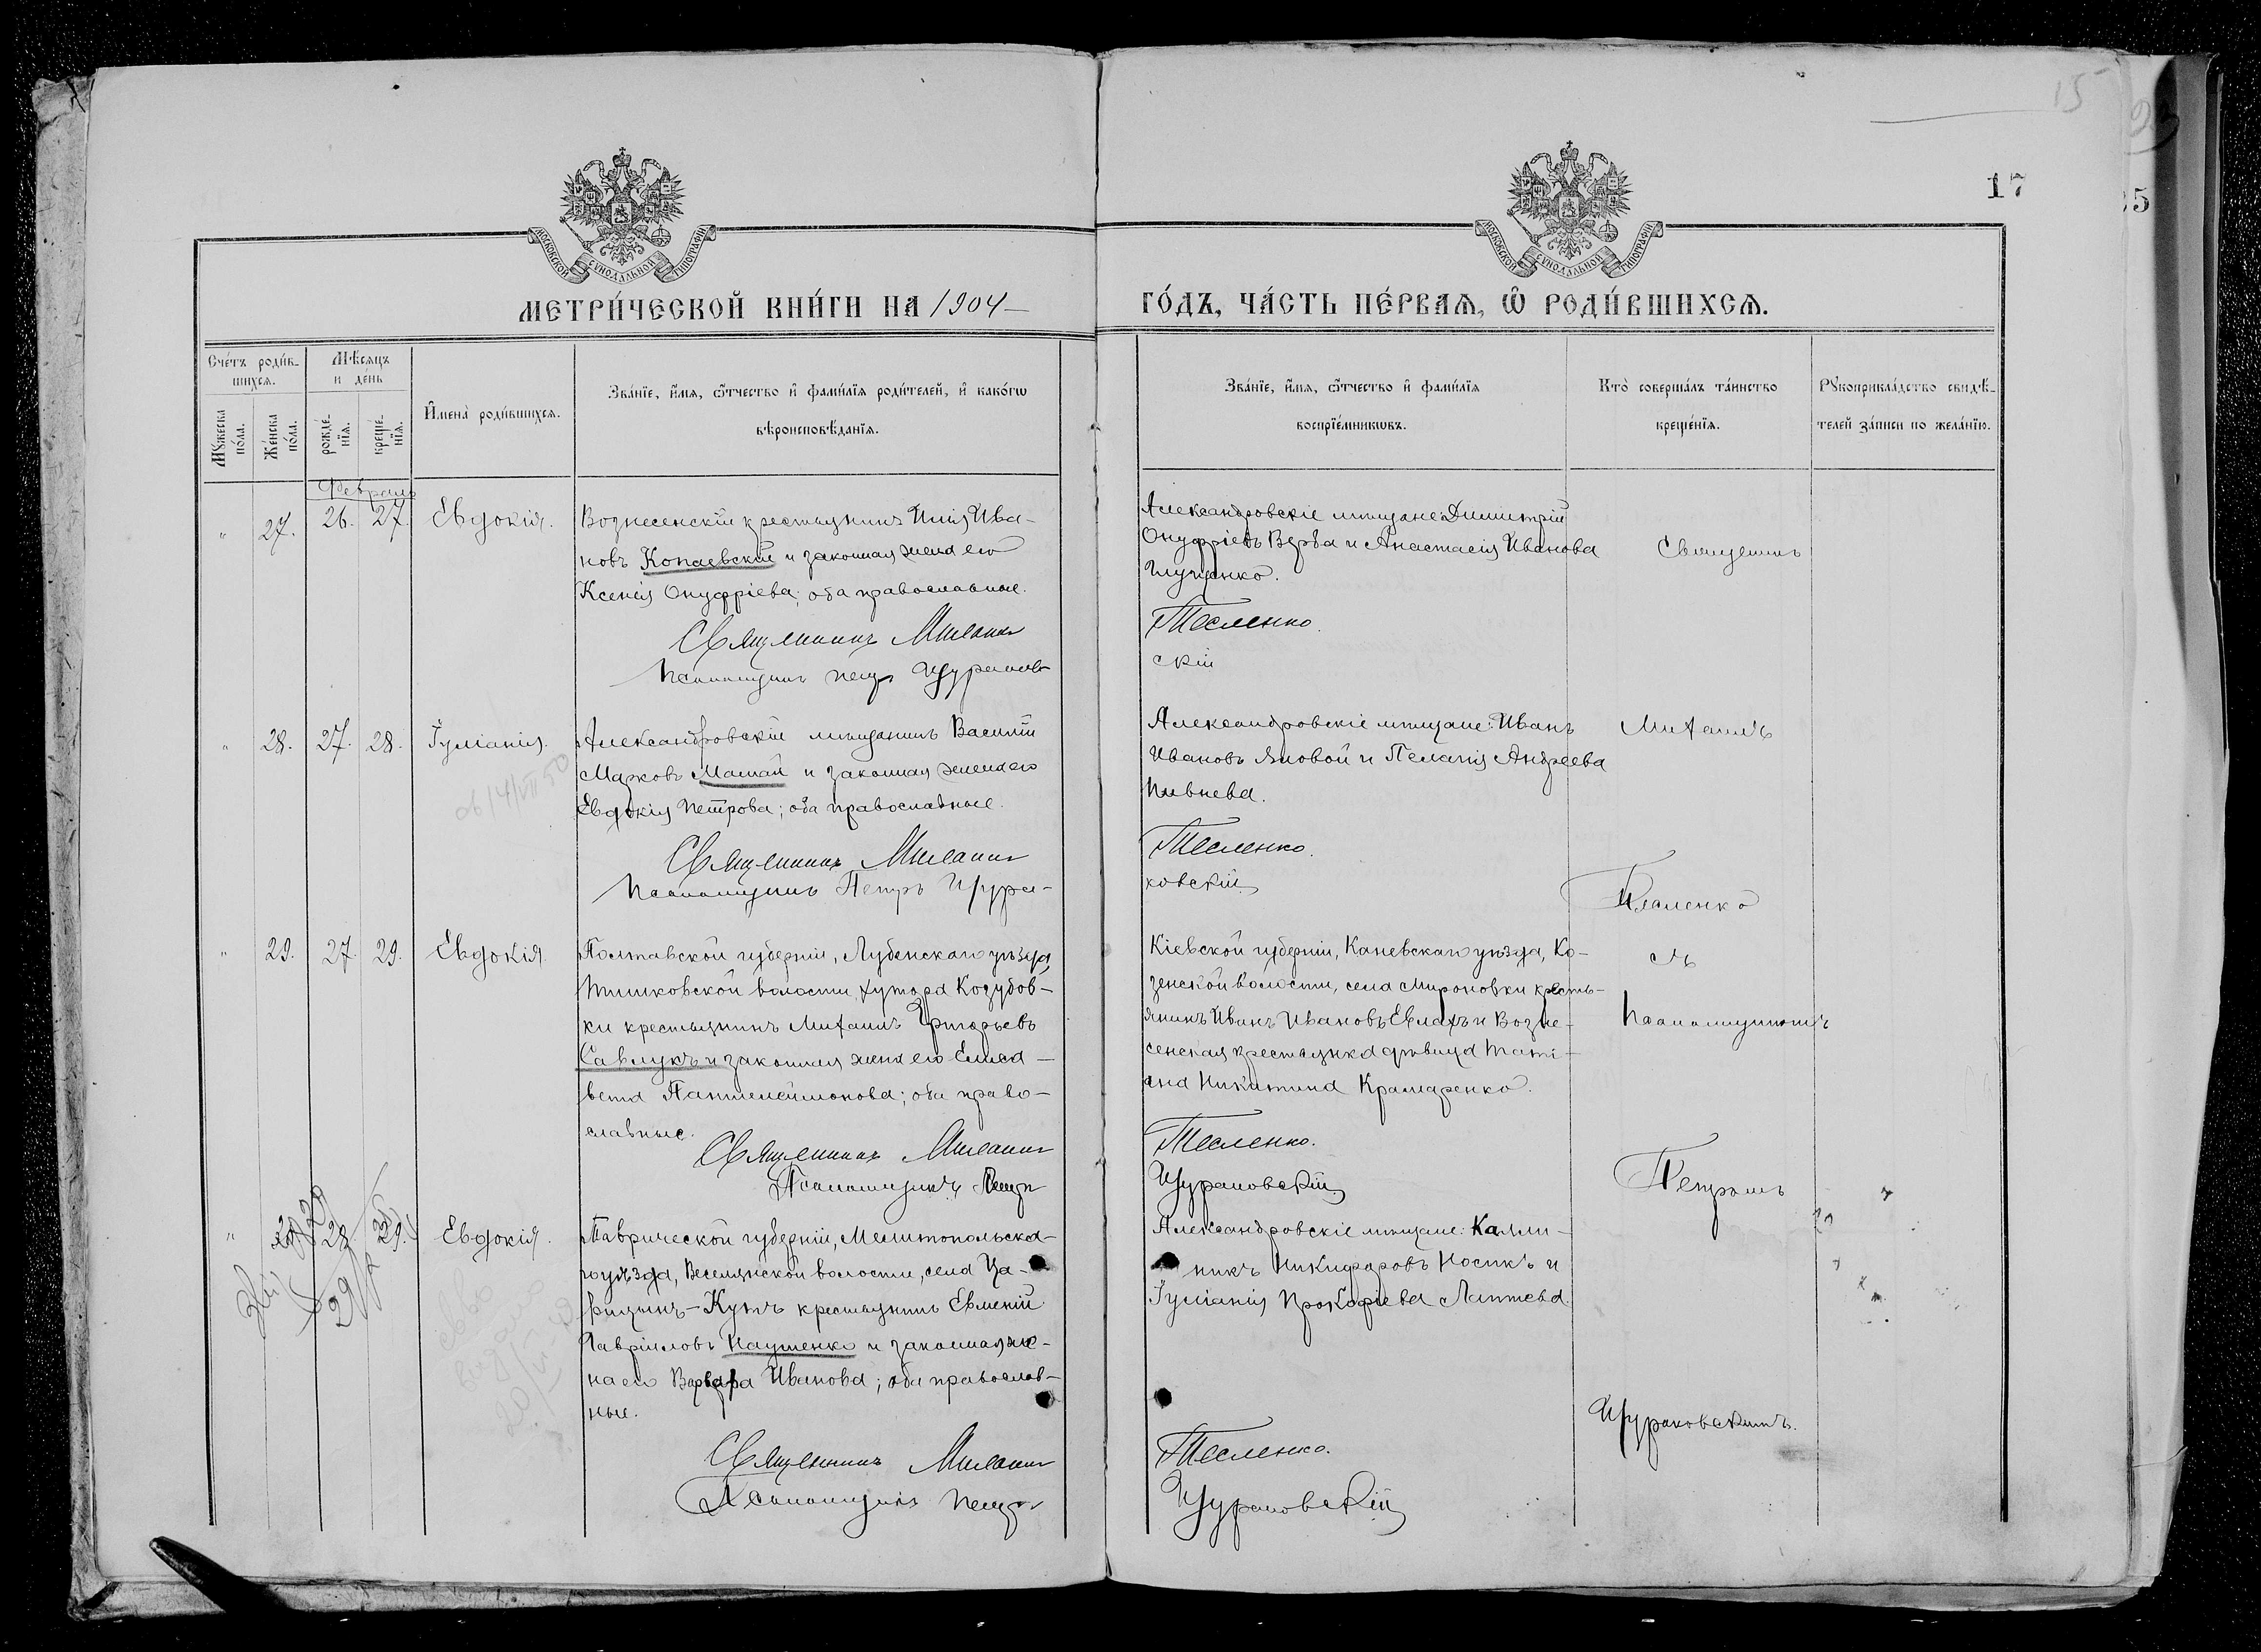 15
17
35
МОСКОВСКОЙ СѴНОДАЛЬНОЙ ТИПОГРАФІИ
МОСКОВСКОЙ СѴНОДАЛЬНОЙ ТИПОГРАФІИ
МЕТРИ́ЧЕСКОЙ КНИ́ГИ НА 1904
ГО́ДЪ, ЧА́СТЬ ПЕ́РВАѦ, Ѽ РОДИ́ВШИХСѦ.
Сче́тъ роди́в-
шихсѧ.
Мꙋ́жеска
по́ла.
Же́нска
по́ла.
Мѣ́сѧцъ
и де́нь
рожде́-
нїѧ.
креще́-
нїѧ.
И҆мена̀ роди́вшихсѧ.
Зва́нїе, и҆́мѧ, ѻ҆́тчество и҆ фами́лїѧ роди́телей, и҆ како́гѡ
вѣроисповѣ́данїѧ.
Зва́нїе, и҆́мѧ, ѻ҆́тчество и҆ фами́лїѧ
воспрїе́мникѡвъ.
Кто̀ соверша́лъ та́инство
креще́нїѧ.
Рꙋкоприкла́дство свидѣ́-
телей за́писи по жела́нїю.
Февраль
" 27. 26. 27. Евдокія.
Вознесенскій крестьянинъ Илія Ива-
новъ Копаевскій и законная жена его
Ксенія Онуфріева; оба православные.
Священникъ Михаилъ
Псаломщикъ Петръ Щураков-
Александровскіе мѣщане: Димитрій
Онуфріевъ Верба и Анастасія Иванова
Глущенко.
Тесленко.
скій
Священникъ
" 28. 27. 28. Іуліанія.
Александровскій мѣщанинъ Василій
Марковъ Мамай и законная жена его
Евдокія Петрова; оба православные.
Священникъ Михаилъ
Псаломщикъ Петръ Щура-
Александровскіе мѣщане: Иванъ
Ивановъ Яловой и Пелагія Андреева
Пивнева.
Тесленко.
ковскій
Михаилъ
Тесленко
" 29. 27. 29. Евдокія
Полтавской губерніи, Лубенскаго уѣзда,
Тишковской волости, хутора Козубов-
ки крестьянинъ Михаилъ Григорьевъ
Савлукъ и законная жена его Елиса-
вета Пантелеймонова; оба право-
славные.
Священникъ Михаилъ
Псаломщикъ Петръ
Кіевской губерніи, Каневскаго уѣзда, Ко-
зенской волости, села Мироновки кресть-
янинъ Иванъ Ивановъ Евлахъ и Возне-
сенская крестьянка дѣвица Тати-
ана Никитина Крамаренко.
Тесленко.
Щураковскій
съ
Псаломщикомъ
Петромъ
" 28 29. Евдокія.
Таврической губерніи, Мелитопольска-
го уѣзда, Веселянской волости, села Ца-
рицынъ-Кутъ крестьянинъ Евменій
Гавріиловъ Наутенко и законная же-
на его Варвара Иванова; оба православ-
ные.
Священникъ Михаилъ
Псаломщикъ Петръ
Александровскіе мѣщане: Калли-
никъ Никифоровъ Носикъ и
Іуліанія Прокофіева Лаптева.
Тесленко.
Щураковскій
Щураковскимъ.